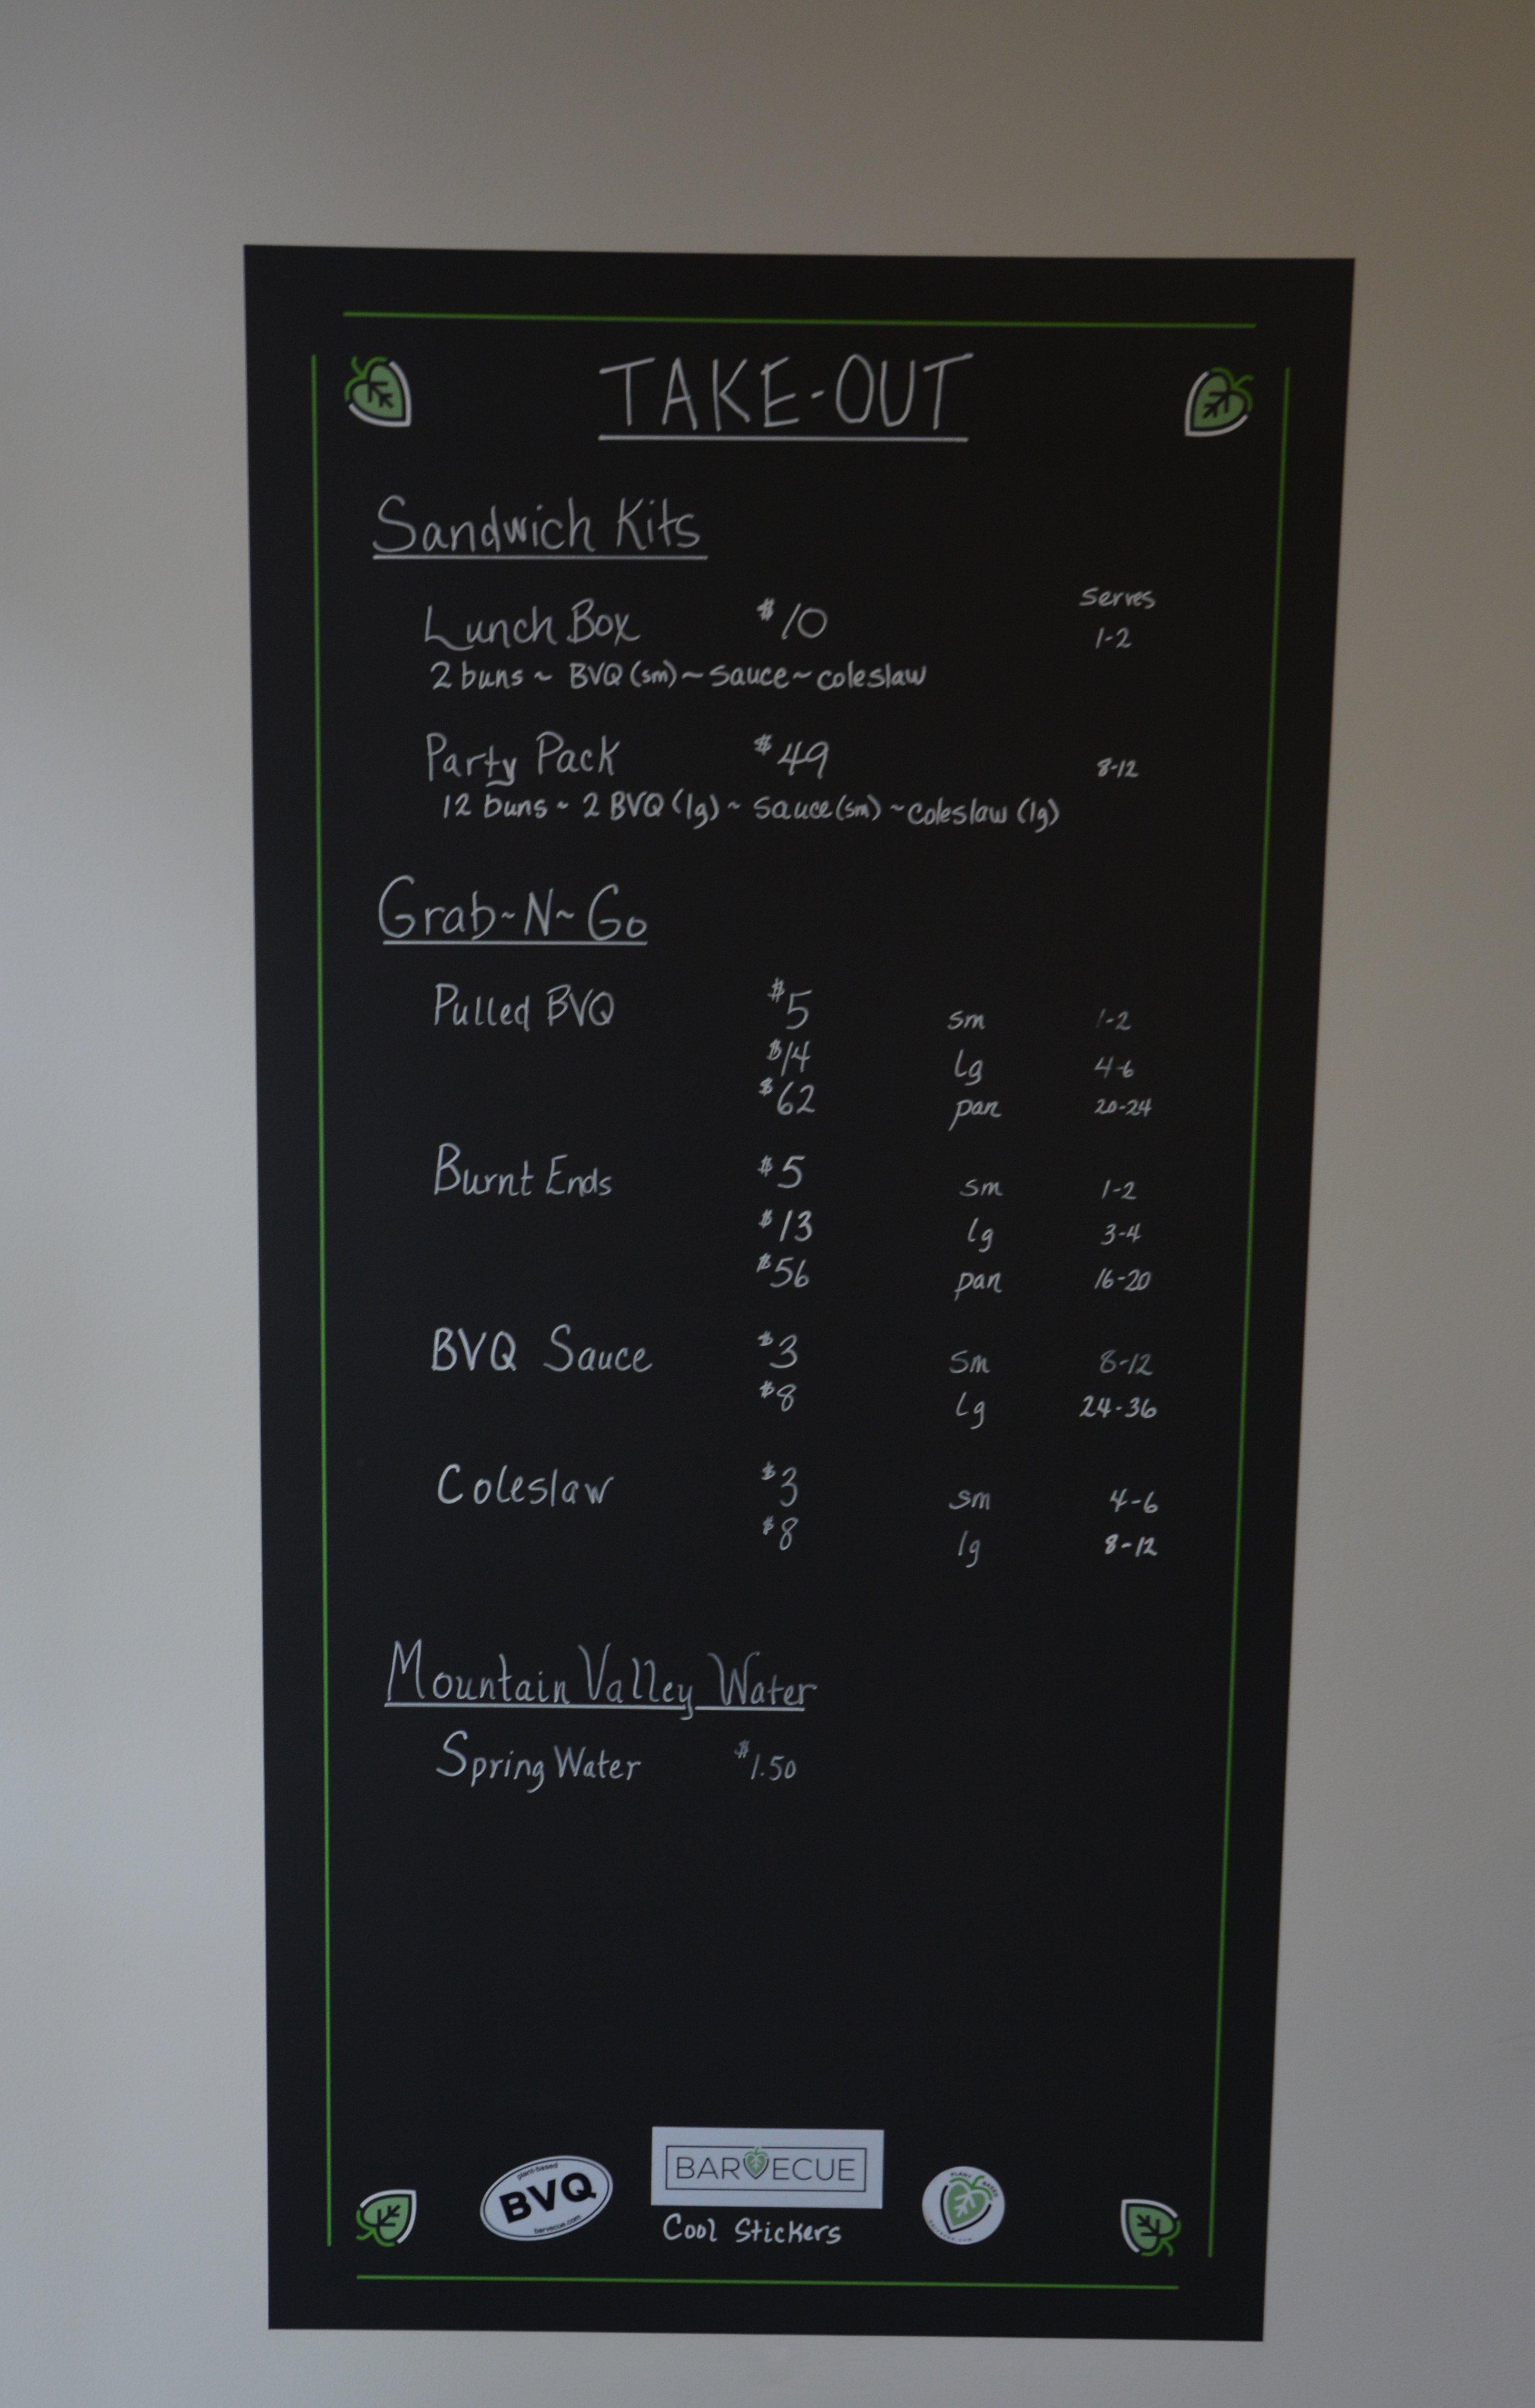 TAKE-OUT
Sandwich Kits
Serves
Lunch Box $10 1-2
2 buns ~ BVQ (sm) ~ sauce ~ coleslaw
Party Pack $49 8-12
12 buns ~ 2 BVQ (lg) ~ sauce (sm) ~ coleslaw (lg)
Grab~N~Go
Pulled BVQ $5 sm 1-2
$14 lg 4-6
$62 pan 20-24
Burnt Ends $5 sm 1-2
$13 lg 3-4
$56 pan 16-20
BVQ Sauce $3 sm 8-12
$8 lg 24-36
Coleslaw $3 sm 4-6
$8 lg 8-12
Mountain Valley Water
Spring Water $1.50
plant-based
BVQ
barvecue.com
BARVECUE
PLANT BASED
Cool Stickers